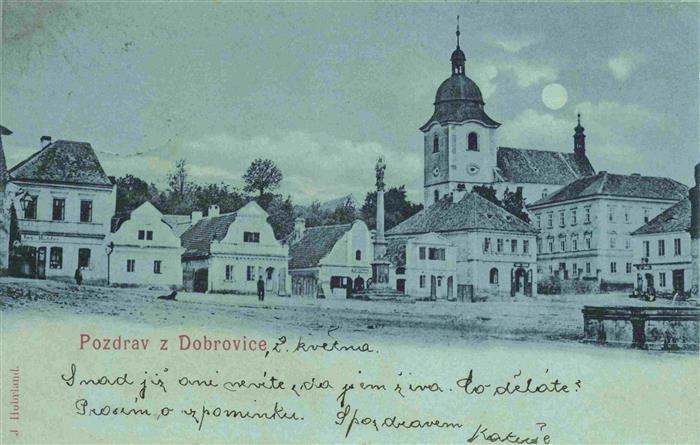 Pozdrav z Dobrovice, 2. května.
Snad již ani nevíte zda jsem živa. Co děláte?
Prosím o vzpomínku. S pozdravem
Katuše
J. Huberland.